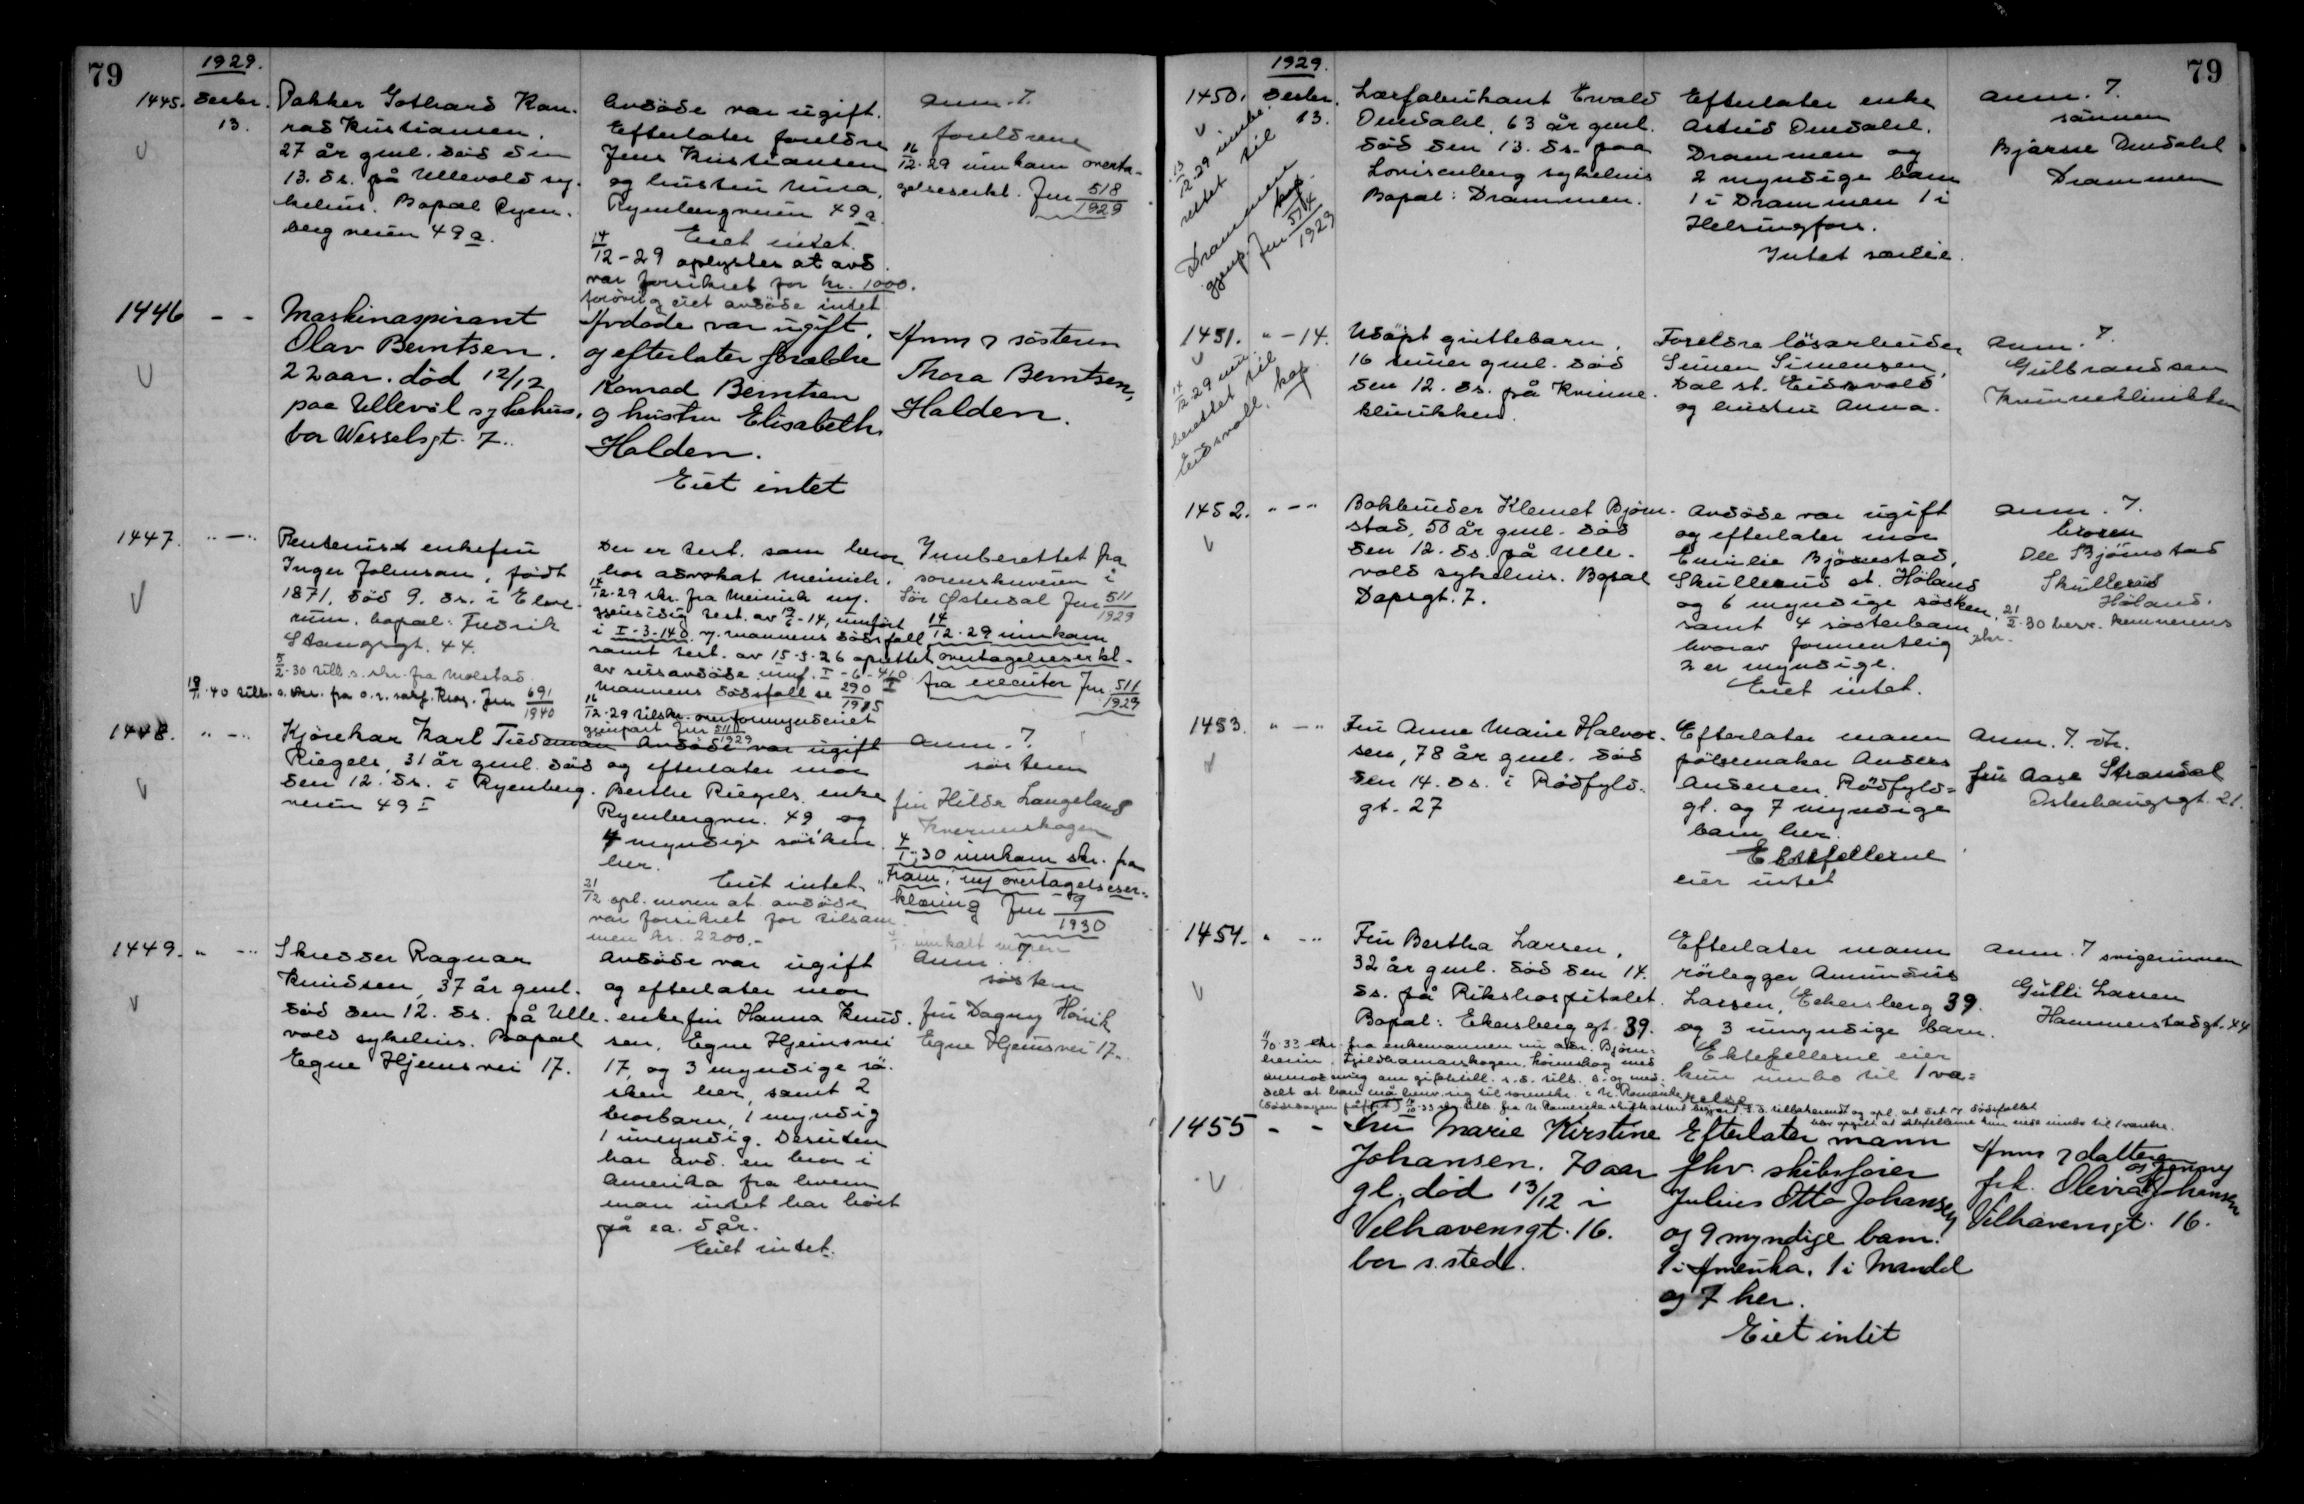 79
1929.
1445. desbr. 13.
Pakker Gothard Kon-
rad Kristiansen.
27 år gml. død den
13. ds. på Ullevold sy-
kehus. Bopæl Ryen-
bergveien 49a.
Avdøde var ugift.
Efterlater foreldre
Jens Kristiansen
og hustru
Ryenbergveien 49a
Eiet intet.
14/12-29 oplystes at avd.
var forsikret for kr. 1000.
forøvrig eiet avdøde intet
anm. 7.
foreldrene
16/12-29 innkom overta-
gelseserkl. Jnr 518/1929
1446 - -
Maskinaspirant
Olav Berntsen.
22 aar. død 12/12
paa Ullevål sykehus.
bor Wesselsgt. 7.
Avdøde var ugift.
og efterlater forældre
Konrad Berntsen
og hustru Elisabeth
Halden.
Eiet intet
Anm 7 søsteren
Thora Berntsen,
Halden.
1447. " - "
Rentenist enkefru
Inger Johnson, født
1871, død 9. ds. i Elve-
rum. bopæl: Fredrik
Stangsgt. 44.
5/2-30 tilb. s. skr. fra Molstad.
19/11-40 tilb. s. skr. fra o.r. sakf. Krog. Jnr 691/1940
Der er test. som beror
hos advokat Meinich.
14/12-29 skr. fra Meinich m.
gjensidig test. av 19/6-14, innført
i I-3-140 v. mannens dødsfall
samt test. av 15-3-26 oprettet
av sisavdøde innf. I-6-410
Mannens dødsfall se 290/1915 I
16/12-29 tilskr. overformynderiet
gjenpart Jnr 511/1929
Innberettet fra
sorenskriveren i
Sør Østerdal Jnr 511/1929
14/12-29 innkom
overtagelseserkl.
fra executor Jnr 511/1929
1448. " - "
Kjørekar Karl Tiedeman
Riegels, 31 år gml. død
den 12. ds. i Ryenberg-
veien 49 I
Avdøde var ugift
og efterlater mor
Berthe Riegels enke
Ryenbergvn. 49, og
4 myndige søsken
her.
Eiet intet.
21/12 opl. moren at avdøde
var forsikret for tilsam
men kr. 2200.-
anm. 7.
søsteren
fru Hilda Langeland
Kvernerskogen
4/1-30 innkom skr. fra
"Fram", m/ overtagelseser-
klæring Jnr 9/1930
4/1 innkalt moren
1449. " - "
Skredder Ragnar
Knudsen, 37 år gml.
død den 12. ds. på Ulle-
vold sykehus. Bopæl
Egne Hjemsvei 17.
Avdøde var ugift
og efterlater mor
enkefru Hanna Knud-
sen, Egne Hjemsvei
17, og 3 myndige sø-
sken her, samt 2
brorbarn, 1 myndig
1 umyndig. Desuten
har avd. en bror i
Amerika fra hvem
man intet har hört
på ca. 5 år.
Eiet intet.
Anm. 7.
søsteren
fru Dagny Høvik
Egne Hjemsvei 17.
79
1929.
1450. desbr. 13.
13/12-29 innbe-
rettet til
Drammen
gjenp. Jnr 514/1929
Lærfabrikant Ewald
Dendahl, 63 år gml.
død den 13. ds. paa
Lovisenberg sykehus
Bopæl: Drammen.
Efterlater enke
Astrid Dendahl.
Drammen og
2 myndige barn
1 i Drammen 1 i
Helsingfors.
Intet særeie.
anm. 7.
sønnen
Bjarne Dendahl
Drammen
1451. " - 14.
14/12-29 inn-
berettet til
Eidsvoll. kap.
Udøpt guttebarn,
16 timer gml. død
den 12. ds. på Kvinne-
klinikken.
Foreldre løsarbeider
Simen Simensen,
Dal st. Eidsvold
og hustru Anna.
anm. 7.
Gulbrandsen
Kvinneklinikken
1452. " - "
Bokbinder Klemet Bjørn-
stad, 50 år gml. død
den 12. ds. på Ulle-
vold sykehus. Bopæl
Dapsgt. 7.
Avdøde var ugift
og efterlater mor
Emilie Bjørnstad,
Skullerud st. Høland
og 6 myndige søsken,
samt 4 søsterbarn
hvorav formentlig
2 er myndige.
Eiet intet.
anm. 7.
broren
Ole Bjørnstad
Skullerud
Høland.
21/2-30 besv. kemnerens
skr.
1453. " - "
Fru Anne Marie Halvor-
sen, 78 år gml. død
den 14. ds. i Rødfyld-
gt. 27
Efterlater mann
pølsemaker Anders
Andersen, Rødfyld-
gt. og 7 myndige
barn her.
Ektefellerne
eier intet
Anm. 7. dtr.
fru Aase Strandal
Osterhausgt. 21.
1454. " - "
Fru Bertha Larsen,
32 år gml. død den 14.
ds. på Rikshospitalet.
Bopæl: Ekersberg gt. 39.
11/10-33 skr. fra enkemannen nu adr. Bjørn-
heim, Fjeldhamarskogen, Lørenskog med
anmodning om giftetill. s.d. tilb. s. og med-
delt at han må henv. sig til sorenskr. i N. Romerike
Efterlater mann
rørlegger Amundus
Larsen, Ekersberg 39.
og 3 umyndige barn.
Ektefellerne eier
kun innbo til 1 væ-
relse
anm. 7 svigerinnen
Gulli Larsen
Hammerstadgt. 44
1455 - -
Fru Marie Kirstine
Johansen. 70 aar
gl. død 13/12 i
Velhavensgt. 16.
bor s. sted.
Efterlater mann
fhv. skibsfører
Julius Otto Johansen
og 9 myndige barn.
1 i Amerika, 1 i Mandal
og 7 her.
Eiet intet
Anm 7 datteren
frk. Olivia og Jenny Johansen
Velhavensgt. 16.